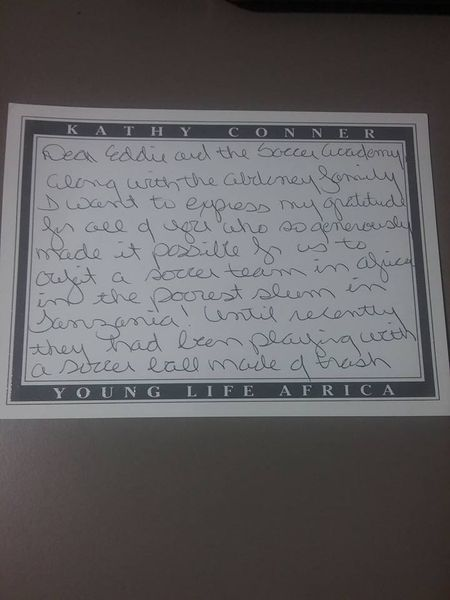 KATHY CONNER
Dear Eddie and the Soccer Academy
Along with the family
I want to express my gratitude
for all of you who so generously
made it possible for us to
outfit a soccer team in Africa
in the poorest slum in
Tanzania! Until recently
they had been playing with
a soccer ball made of trash
YOUNG LIFE AFRICA